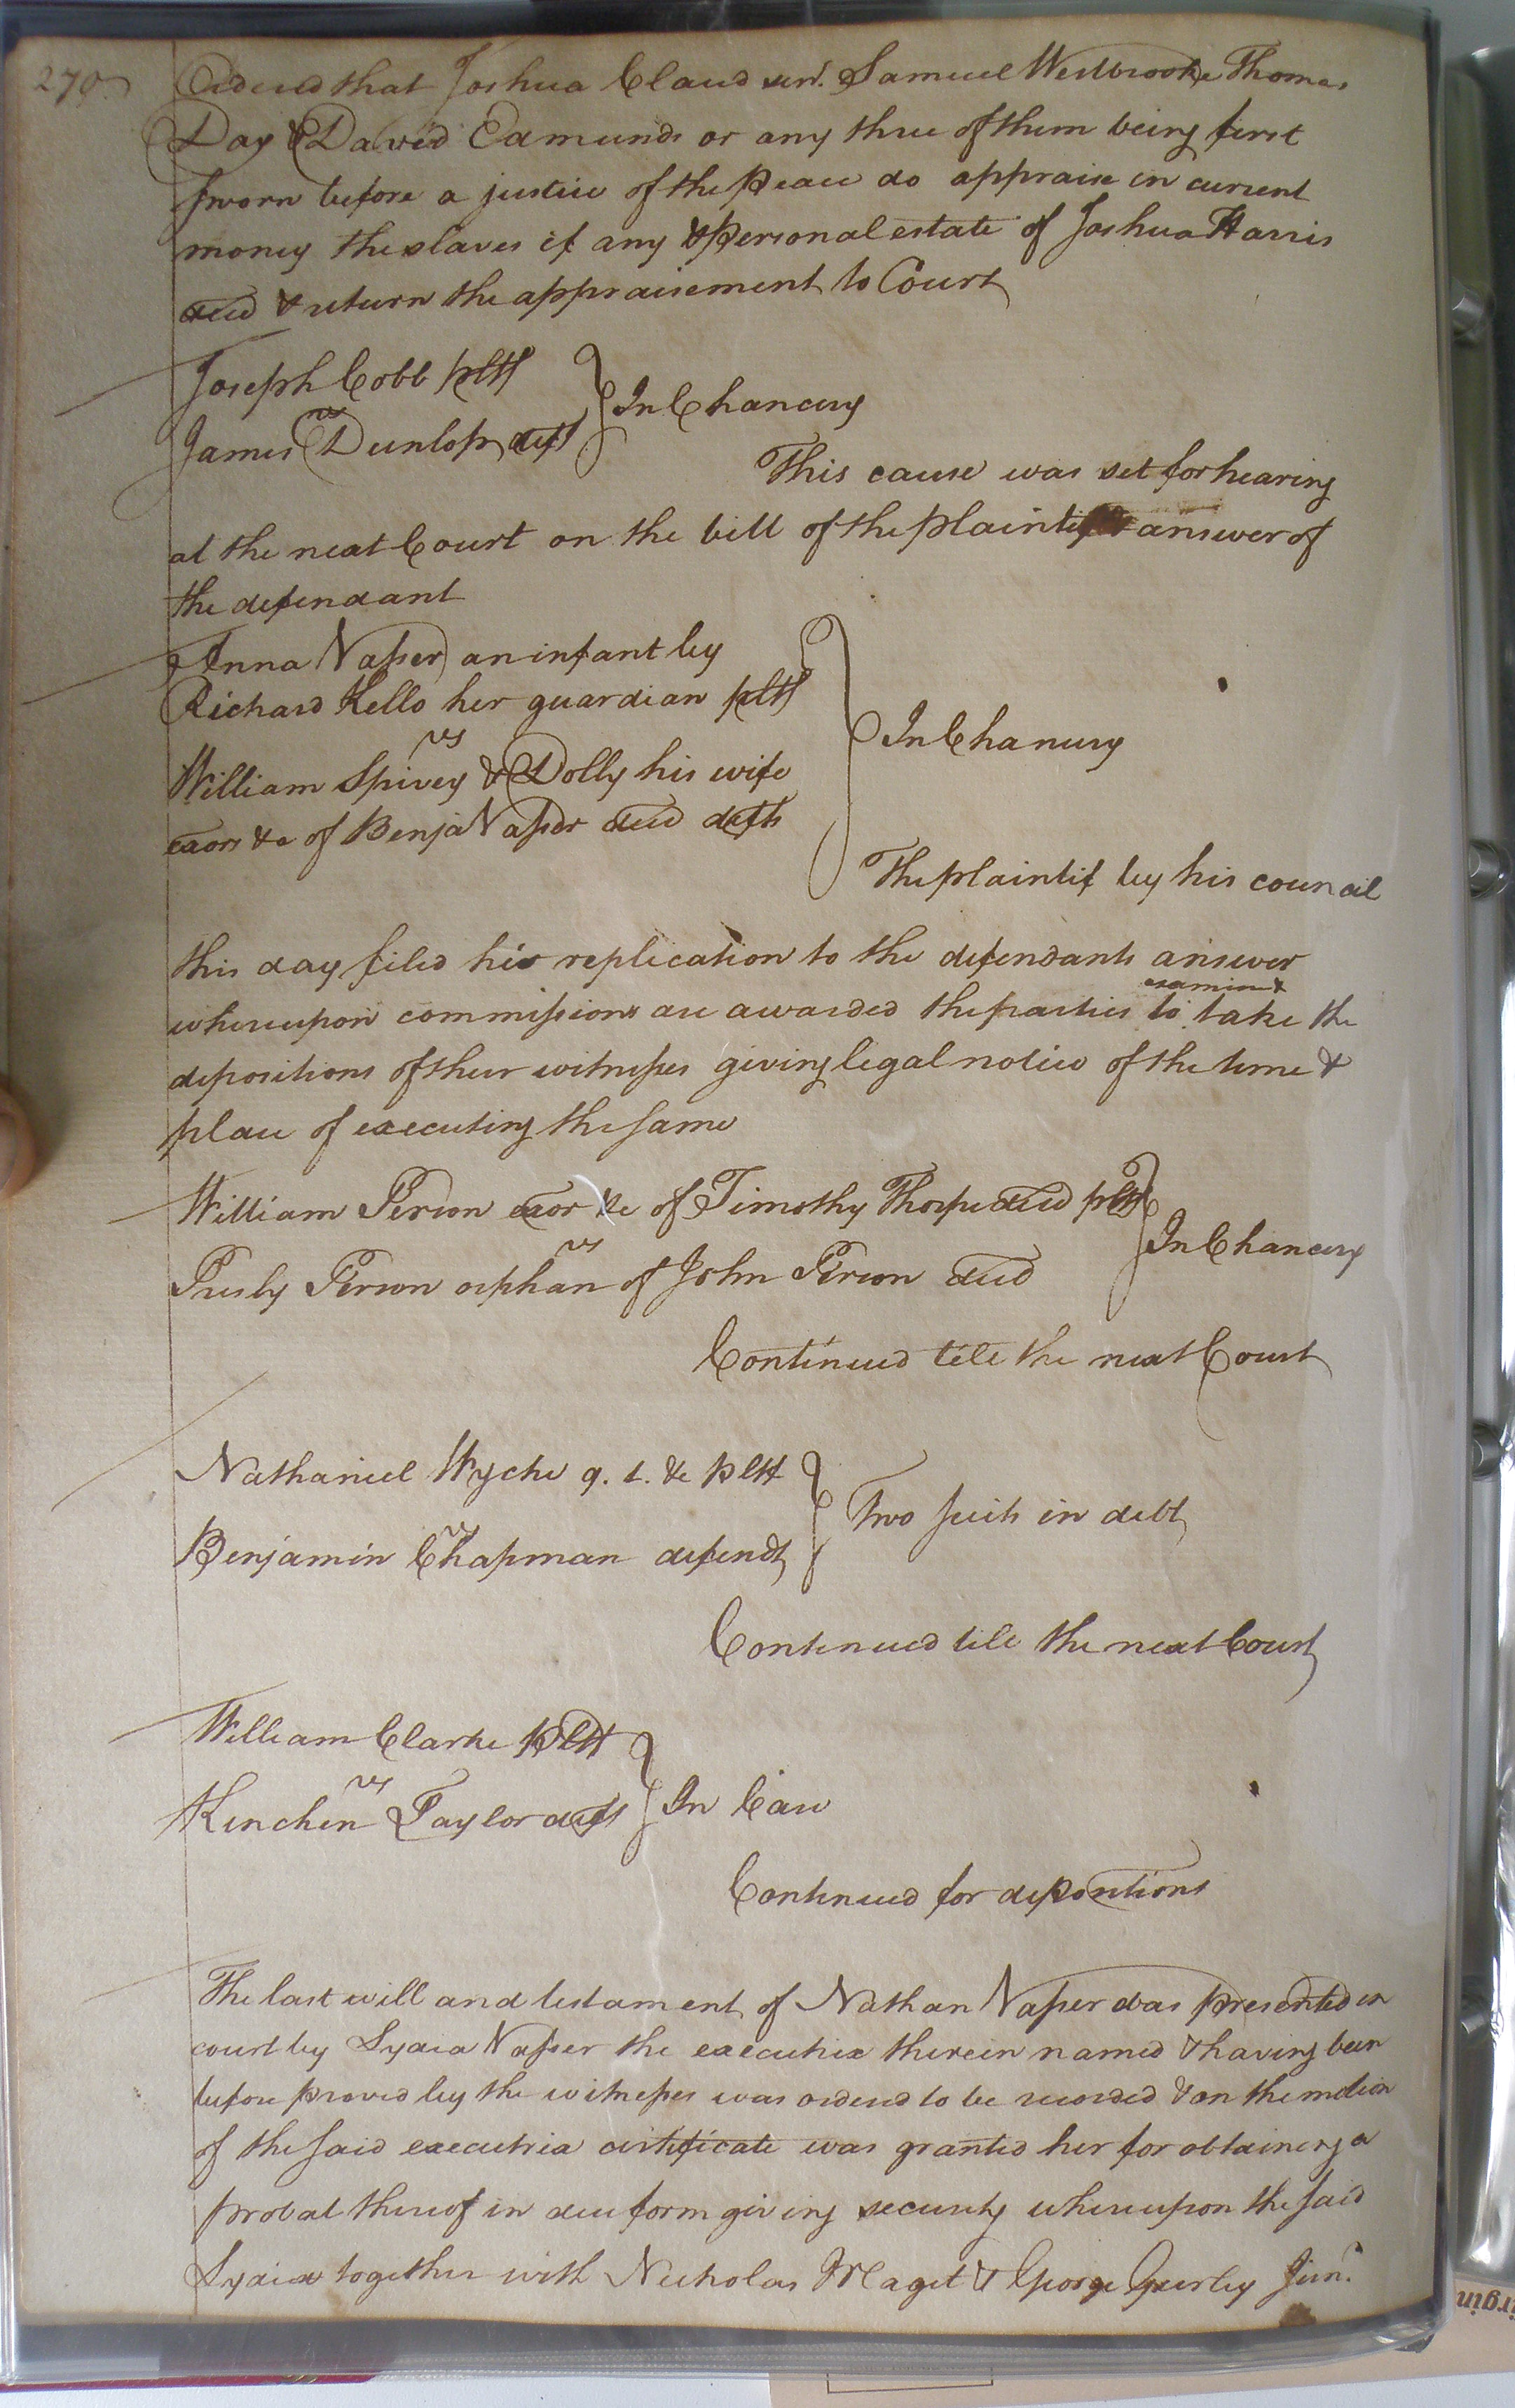 270
Ordered that Joshua Claud senr. Samuel Westbrooke Thomas
Day & David Edmunds or any three of them being first
sworn before a justice of the peace do appraise in current
money the slaves if any & personal estate of Joshua Harris
decd & return the appraisement to Court
Joseph Cobb pltf
vs
James Dunlop deft
In Chancery
This cause was set for hearing
at the next Court on the bill of the plaintif & answer of
the defendant
Anna Naper an infant by
Richard Kello her guardian pltf
vs
William Spivey & Dolly his wife
exors &c of Benja Naper decd defts
In Chancery
The plaintif by his council
this day filed his replication to the defendants answer
whereupon commissions are awarded the parties to examine & take the
depositions of their witnesses giving legal notice of the time &
place of executing the same
William Person exor &c of Timothy Thorpe decd pltf
vs
Presly Person orphan of John Person decd
In Chancery
Continued till the next Court
Nathaniel Wyche q. t. &c pltf
vs
Benjamin Chapman defendt
Two suits in debt
Continued till the next Court
William Clarke pltf
vs
Kinchen Taylor deft
In Case
Continued for depositions
The last will and testament of Nathan Naper was presented in
court by Lydia Naper the executrix therein named & having been
before proved by the witnesses was ordered to be recorded & on the motion
of the said executrix certificate was granted her for obtaining a
probat thereof in due form giving security whereupon the said
Lydia together with Nicholas Maget & George Gurley Junr.